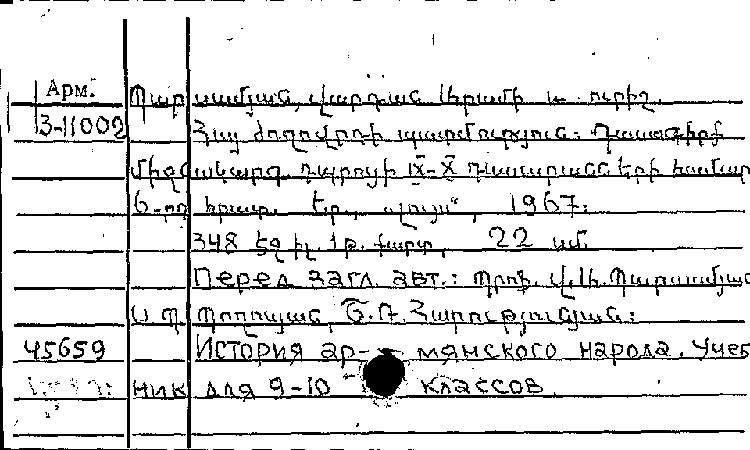 Арм.
3-11002
Պարսամյան, Վարդան Արամի և ուրիշ.
Հայ ժողովրդի պատմություն: Դասագիրք
միջնակարգ դպրոցի IX-X դասարանների համար
6-րդ հրատ. Եր., „Լույս“, 1967:
348 էջ իլ. 1թ. քարտ, 22 սմ.
Перед загл. авт.: Պրոֆ. Վ.Ա. Պարսամյան
Ս.Պ. Պողոսյան, Շ.Ռ. Հարությունյան:
45659
История ар- мянского народа. Учеб
ник для 9-10 классов